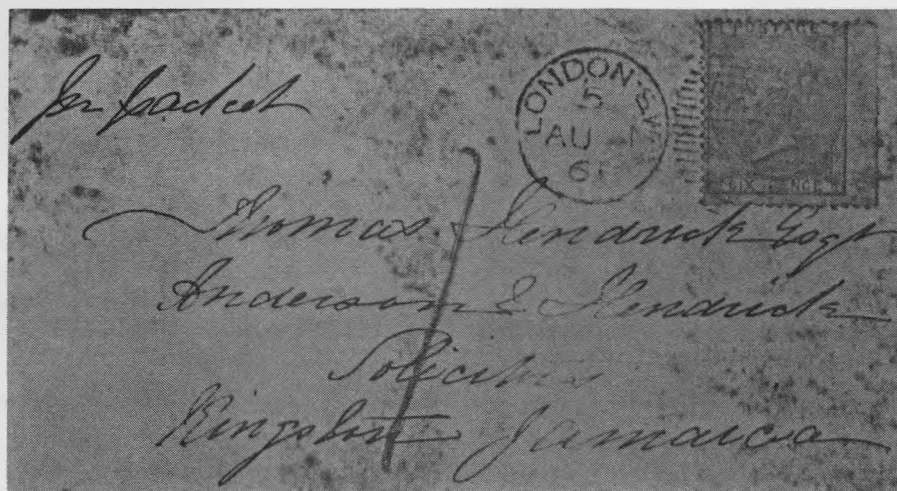 Per packet
LONDON·S.W
5
AU - 1
61
POSTAGE
SIX PENCE
Thomas Hendrick Esqr
Anderson & Hendrick
Solicitors
Kingston Jamaica
1